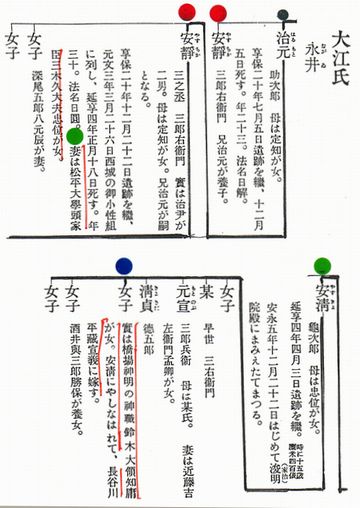 大江氏
永井
治元
はる もと
助次郎 母は定知が女。
享保二十年七月五日遺跡を繼、十二月
五日死す。年二十三。法名日解。
安靜
三郎右衛門 兄治元が養子。
安靜
やす ちか
三之丞 三郎右衛門 實は治尹が
二男。母は定知が女。兄治元が嗣
となる。
享保二十年十二月二十二日遺跡を繼、
元文三年三月二十六日西城の御小性組
に列し、延享四年正月十八日死す。年
三十。法名日圓。妻は松平大學頭家
臣三木久大夫忠位が女。
女子
深尾五郎八元辰が妻。
女子
安淸
やす きよ
龜次郎 母は忠位が女。
延享四年四月三日遺跡を繼。
時に十五歲
廩米四百俵
安永五年十二月二十二日はじめて浚明
院殿にまみえたてまつる。
(家治)
女子
某
早世 三右衛門
元宣
三郎兵衛 母は某氏。 妻は近藤吉
左衛門孟卿が女。
淸貞
德五郎
女子
實は橋場神明の神職鈴木大領知庸
が女。安淸にやしなはれて、長谷川
平藏宣義に嫁す。
女子
酒井與三郎勝保が養女。
女子